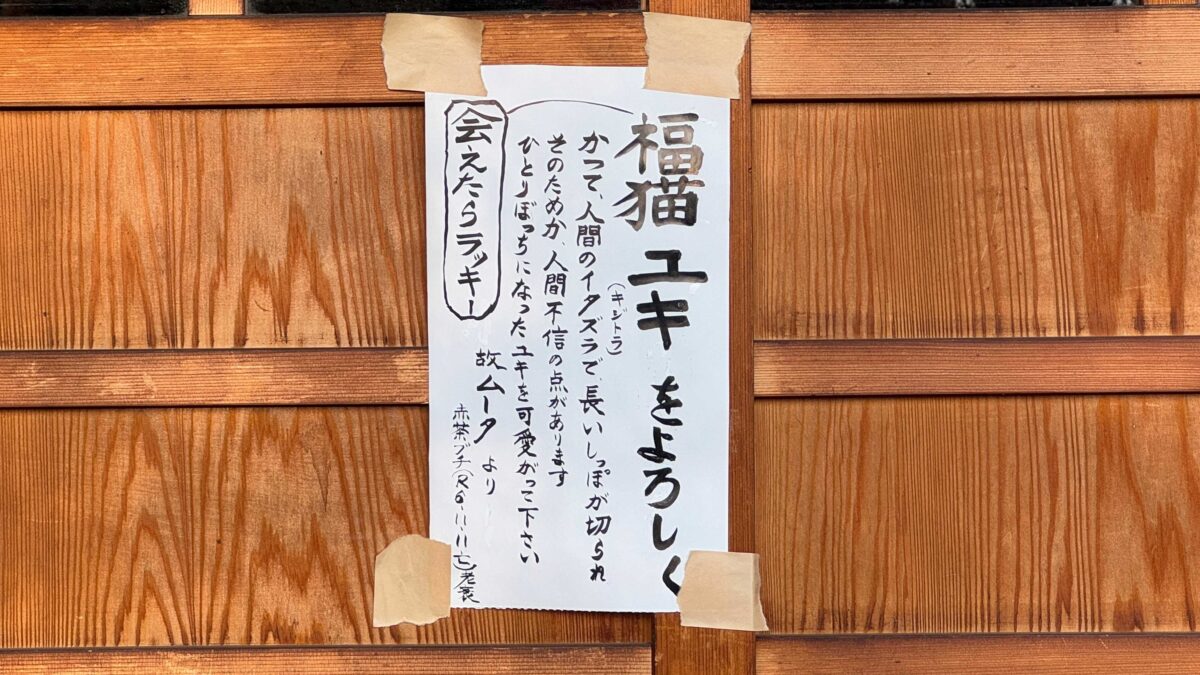 福猫 ユキ をよろしく
(キジトラ)
かつて、人間のイタズラで、長いしっぽが切られ
そのためか、人間不信の点があります
ひとりぼっちになったユキを可愛がって下さい
会えたらラッキー
故ムータ より
赤茶ブチ(R6.11.11亡)老衰